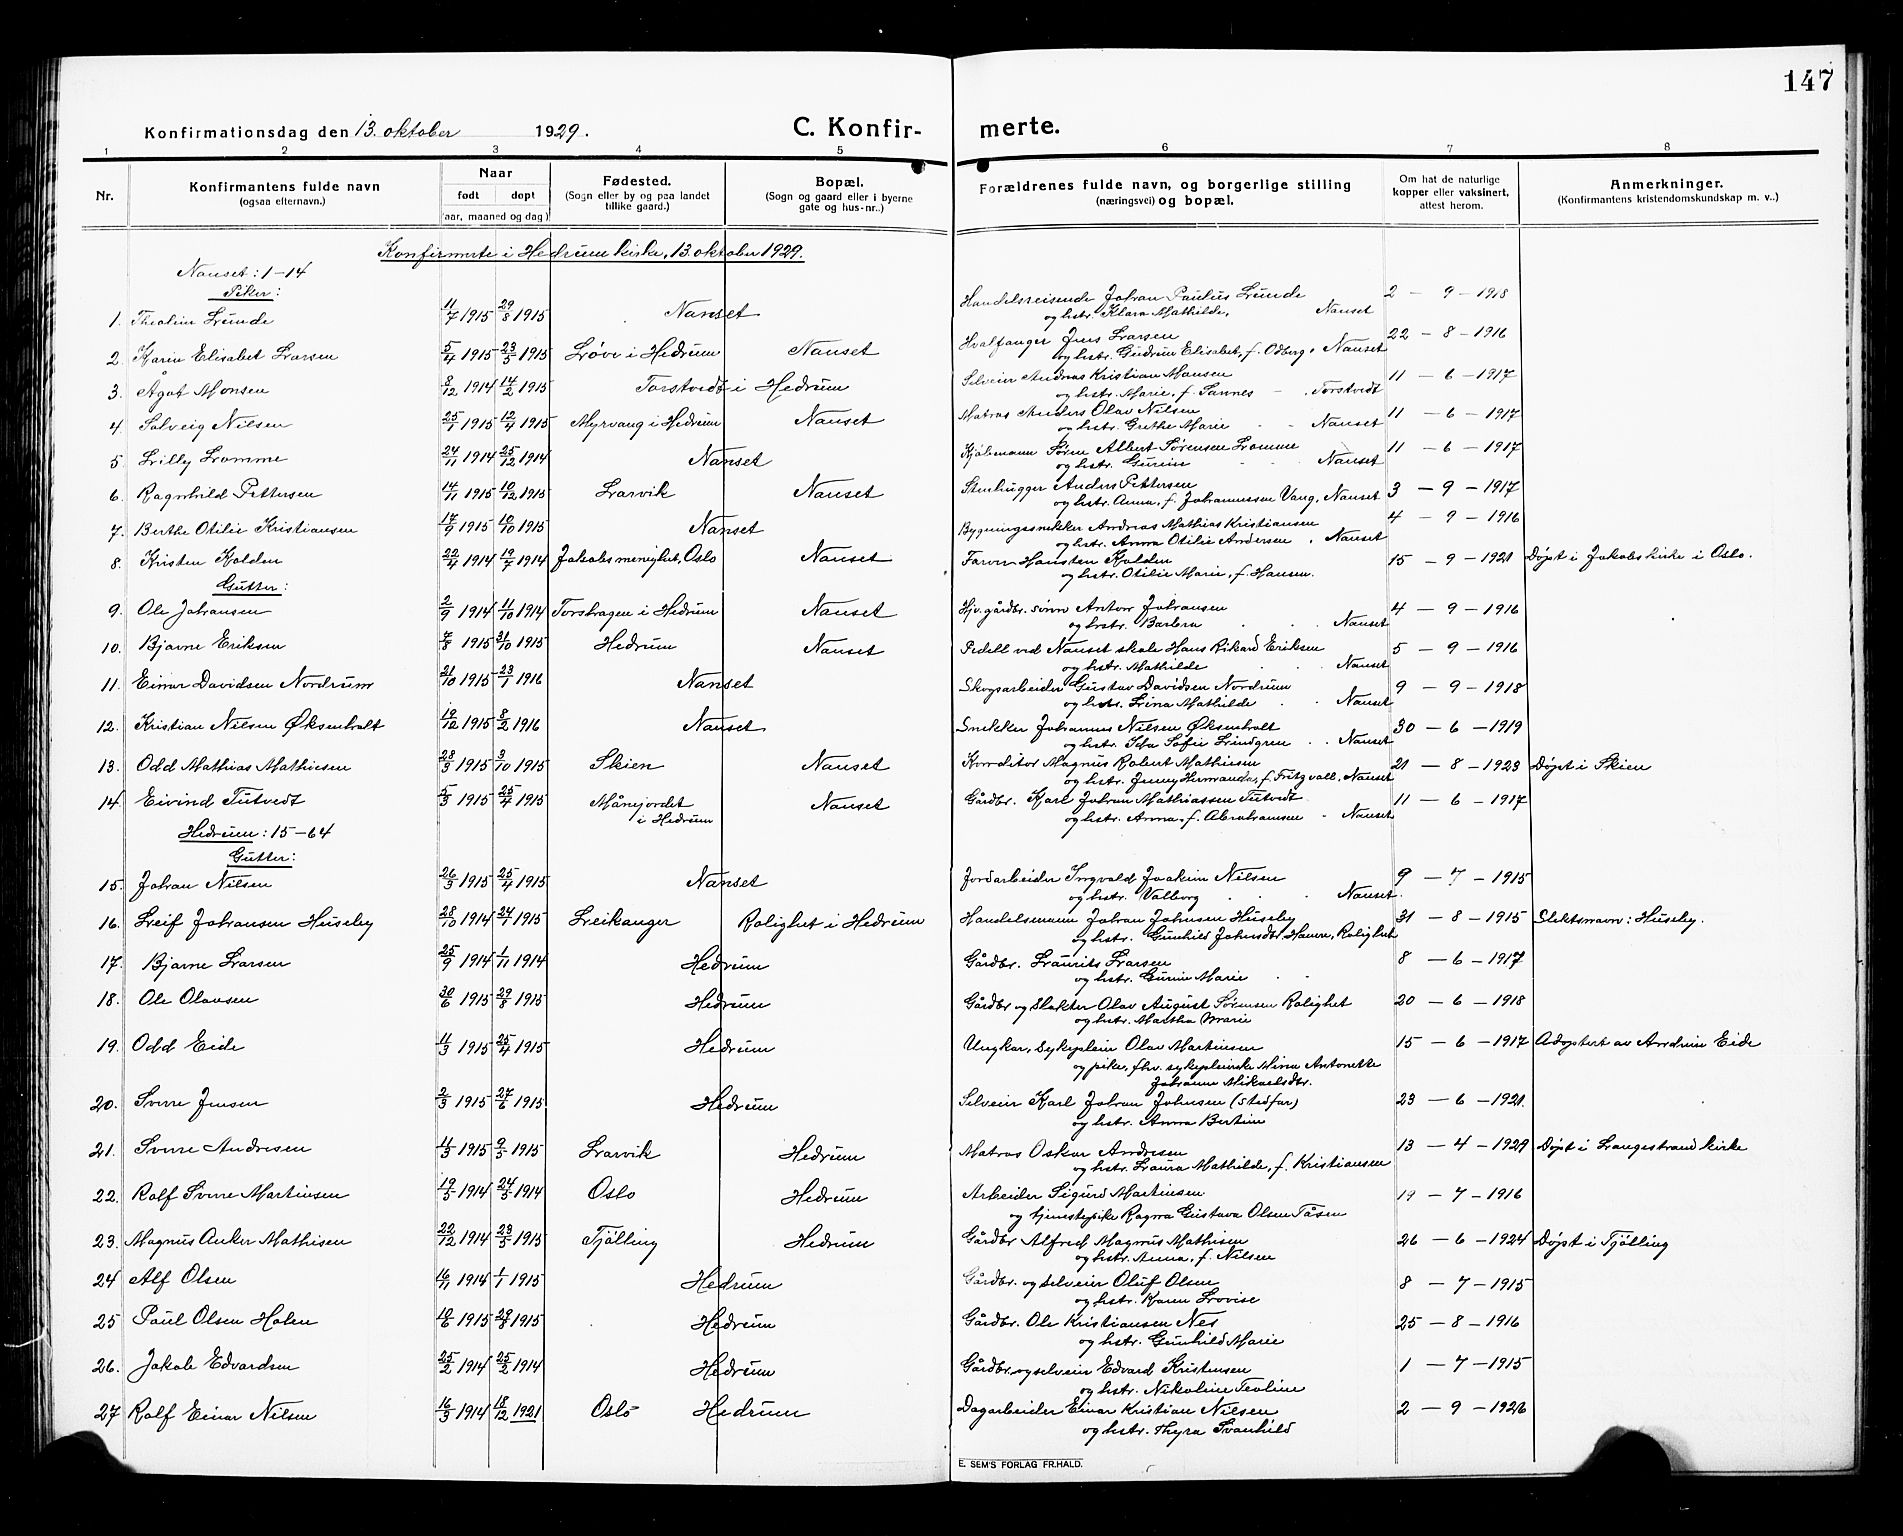 147
Konfirmationsdag den 13. oktober 1929. C. Konfir- merte.
1 2 3 4 5 6 7 8
Nr. Konfirmantens fulde navn (ogsaa efternavn.) Naar født døpt (aar, maaned og dag) Fødested. (Sogn eller by og paa landet tillike gaard.) Bopæl. (Sogn og gaard eller i byerne gate og hus-nr..) Forældrenes fulde navn, og borgerlige stilling (næringsvei) og bopæl. Om hat de naturlige kopper eller vaksinert, attest herom. Anmerkninger. (Konfirmantens kristendomskundskap m. v..)
Konfirmerte i Hedrum kirke, 13. oktober 1929.
Nanset: 1-14
Piker:
1. Theoline Lunde 11/7 1915 29/8 1915 Nanset Handelsreisende Johan Paulus Lunde 2 - 9 - 1918
og hstr. Klara Mathilde, Nanset
2. Karin Elisabet Larsen 5/4 1915 23/5 1915 Løve i Hedrum Nanset Hvalfanger Jens Larsen 22 - 8 - 1916
og hstr. Gudrun Elisabet, f. Odberg, Nanset
3. Ågot Monsen 8/12 1914 14/2 1915 Torstvedt i Hedrum Selveier Andreas Kristian Monsen 11 - 6 - 1917
og hstr. Marie, f. Sannes - Torstvedt
4. Solveig Nilsen 25/1 1915 12/4 1915 Myrvang i Hedrum Nanset Matros Anders Olav Nilsen 11 - 6 - 1917
og hstr. Grethe Marie Nanset
5. Lilly Lomme 24/11 1914 25/12 1914 Nanset Kjøbmann Søren Albert Sørensen Lomme 11 - 6 - 1917
og hstr. Gurine Nanset
6. Ragnhild Pettersen 14/11 1915 10/12 1915 Larvik Nanset Stenhugger Anders Pettersen 3 - 9 - 1917
og hstr. Anna, f. Johannessen Vang, Nanset
7. Berthe Otilie Kristiansen 17/9 1915 10/10 1915 Nanset Bygningssnekker Andreas Mathias Kristiansen 4 - 9 - 1916
og hstr. Anna Otilie Andersen, Nanset
8. Kristen Kolden 22/4 1914 19/7 1914 Jakobs menighet, Oslo Nanset Farver Hansten Kolden 15 - 9 - 1921 Døpt i Jakobs kirke i Oslo.
og hstr. Otilie Marie, f. Hansen.
Gutter:
9. Ole Johansen 2/9 1914 11/10 1914 Torshagen i Hedrum Nanset Hjv. gårdbr. sønn Anton Johansen 4 - 9 - 1916
og hstr. Barbra Nanset
10. Bjarne Eriksen 7/8 1915 31/10 1915 Hedrum Nanset Pedell ved Nanset skole Hans Rikard Eriksen 5 - 9 - 1916
og hstr. Mathilde Nanset
11. Einar Davidsen Nordrum 21/10 1915 23/1 1916 Nanset Skogsarbeider Gustav Davidsen Nordrum 9 - 9 - 1918
og hstr. Lina Mathilde Nanset
12. Kristian Nilsen Øksenholt 19/12 1915 8/2 1916 Nanset Snekker Johannes Nilsen Øksenholt 30 - 6 - 1919
og hstr. Ida Sofie Lindgren Nanset
13. Odd Mathias Mathiesen 28/3 1915 3/10 1915 Skien Nanset Konditor Magnus Robert Mathiesen 21 - 8 - 1923 Døpt i Skien
og hstr. Jenny Hermanda, f. Fritzvoll, Nanset
14 Eivind Tutvedt 5/3 1915 25/4 1915 Månejordet i Hedrum Nanset Gårdbr. Karl Johan Mathiassen Tutvedt 11 - 6 - 1917
og hstr. Anna, f. Abrahamsen Nanset
Hedrum: 15-64
Gutter:
15. Johan Nilsen 26/3 1915 25/4 1915 Nanset Jordarbeider Ingvald Joakim Nilsen 9 - 7 - 1915
og hstr. Valborg Nanset.
16. Leif Johansen Huseby 28/10 1914 24/1 1915 Leikanger Rolighet i Hedrum Handelsmann Johan Johnsen Huseby 31 - 8 - 1915 Slektsnavn: Huseby.
og hstr. Gunhild Johnsdtr. Hamre, Rolighet
17. Bjarne Larsen 25/9 1914 1/11 1914 Hedrum Gårdbr. Laurits Larsen 8 - 6 - 1917
og hstr. Gurine Marie
18. Ole Olavsen 30/6 1915 29/8 1915 Hedrum Gårdbr. og slakter Olav August Sørensen Rolighet 20 - 6 - 1918
og hstr. Martha Marie
19. Odd Eide 11/3 1915 25/4 1915 Hedrum Ungkar, sykepleier Olav Martinsen 15 - 6 - 1917 Adoptert av Andrine Eide
og pike, fhv. sykepleierske Mina Antonette
Johanne Mikaelsdtr.
20. Sverre Jensen 2/3 1915 27/6 1915 Hedrum Selveier Karl Johan Johnsen (stedfar) 23 - 6 - 1921.
og hstr. Anna Bertine
21. Sverre Andresen 4/3 1915 9/5 1915 Larvik Hedrum Matros Oskar Andresen 13 - 4 - 1929 Døpt i Langestrand kirke
og hstr. Laura Mathilde, f. Kristiansen
22. Rolf Sverre Martinsen 19/5 1914 24/5 1914 Oslo Hedrum Arbeider Sigurd Martinsen 19 - 7 - 1916
og tjenestepike Ragna Gustava Olsen Tåsen
23. Magnus Anker Mathisen 22/12 1914 23/5 1915 Tjølling Hedrum Gårdbr. Alfred Magnus Mathisen 26 - 6 - 1924 Døpt i Tjølling
og hstr. Anna, f. Nilsen
24 Alf Olsen 16/11 1914 1/1 1915 Hedrum Gårdbr. og selveier Oluf Olsen 8 - 7 - 1915
og hstr. Karen Lovise
25 Paul Olsen Holen 10/6 1915 29/8 1915 Hedrum Gårdbr. Ole Kristiansen Nes 25 - 8 - 1916
og hstr. Gunhild Marie
26. Jakob Edvardsen 25/2 1914 25/2 1914 Hedrum Gårdbr. og selveier Edvard Kristensen 1 - 7 - 1915
og hstr. Nikoline Teoline
27 Rolf Einar Nilsen 16/3 1914 18/12 1921 Oslo Hedrum Dagarbeider Einar Kristian Nilsen 2 - 9 - 1926
og hstr. Thyra Svanhild
E. SEM'S FORLAG FR.HALD.